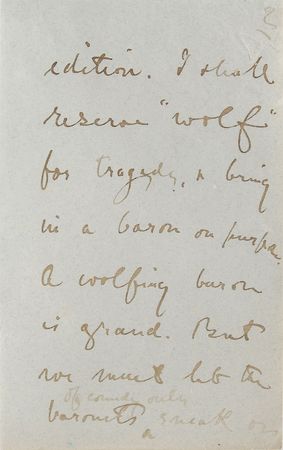 edition. I shall
reserve "wolf"
for tragedy, & bring
in a baron on purpose.
A wolfing baron
is grand. But
we must let the
of comedy only
baronets sneak on